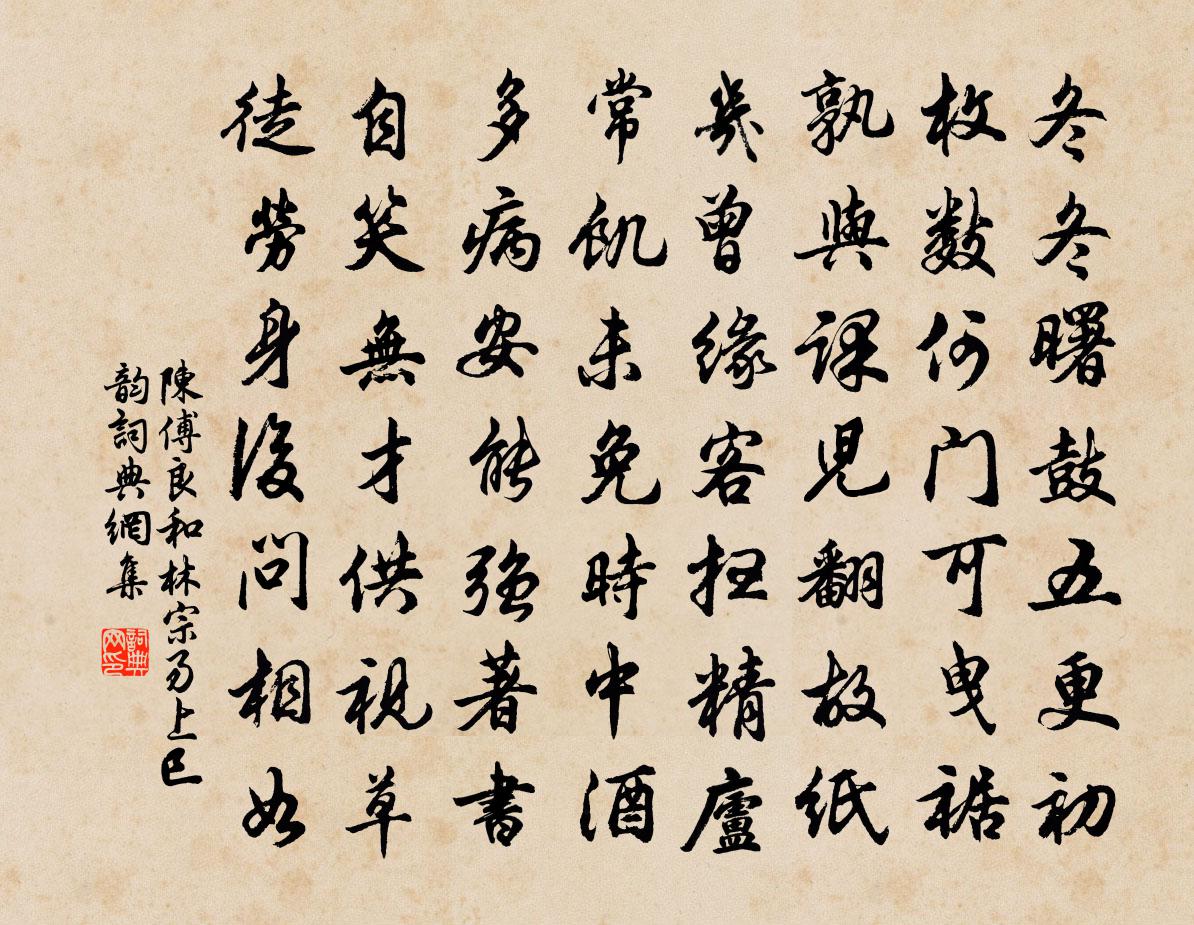 冬冬曙鼓五更初
枚數何门可曳裾
孰與課児翻故紙
幾曾緣客掃精廬
常飢未免時中酒
多病安能強著書
自笑無才供視草
徒勞身後問相如
陳傅良和林宗易上巳
韵詞典網集
詞典网印